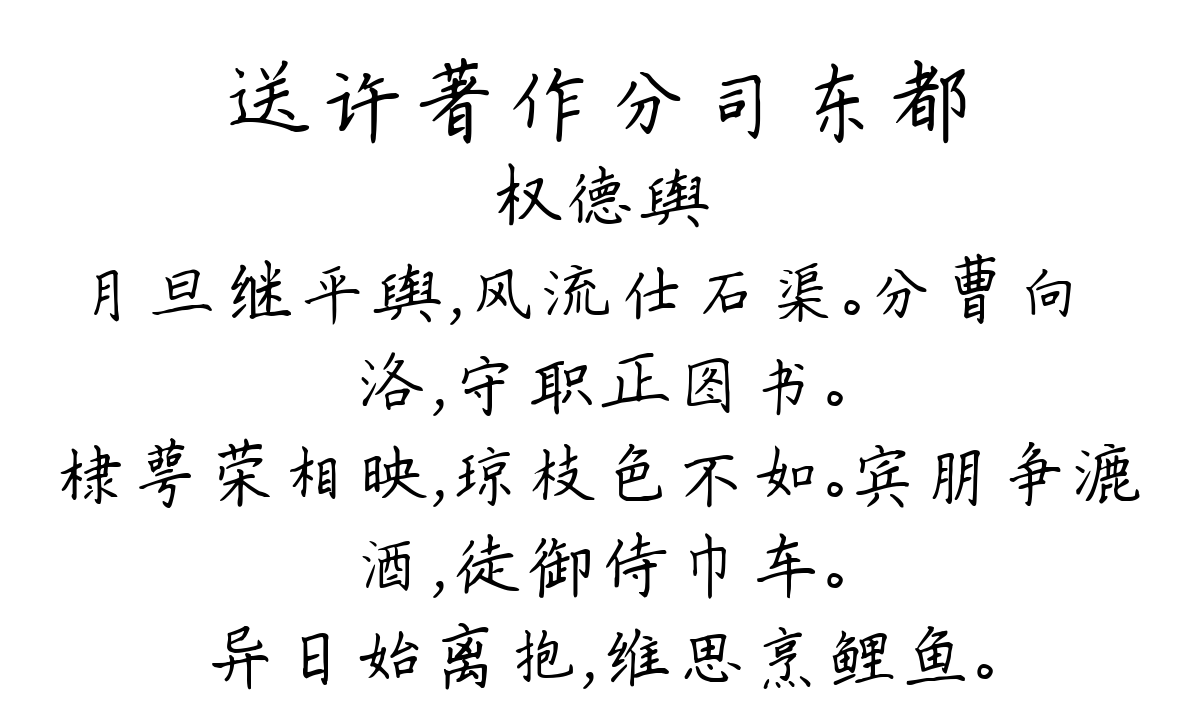 送许著作分司东都
权德舆
月旦继平舆,风流仕石渠。分曹向
洛,守职正图书。
棣萼荣相映,琼枝色不如。宾朋争漉
酒,徒御侍巾车。
异日始离抱,维思烹鲤鱼。